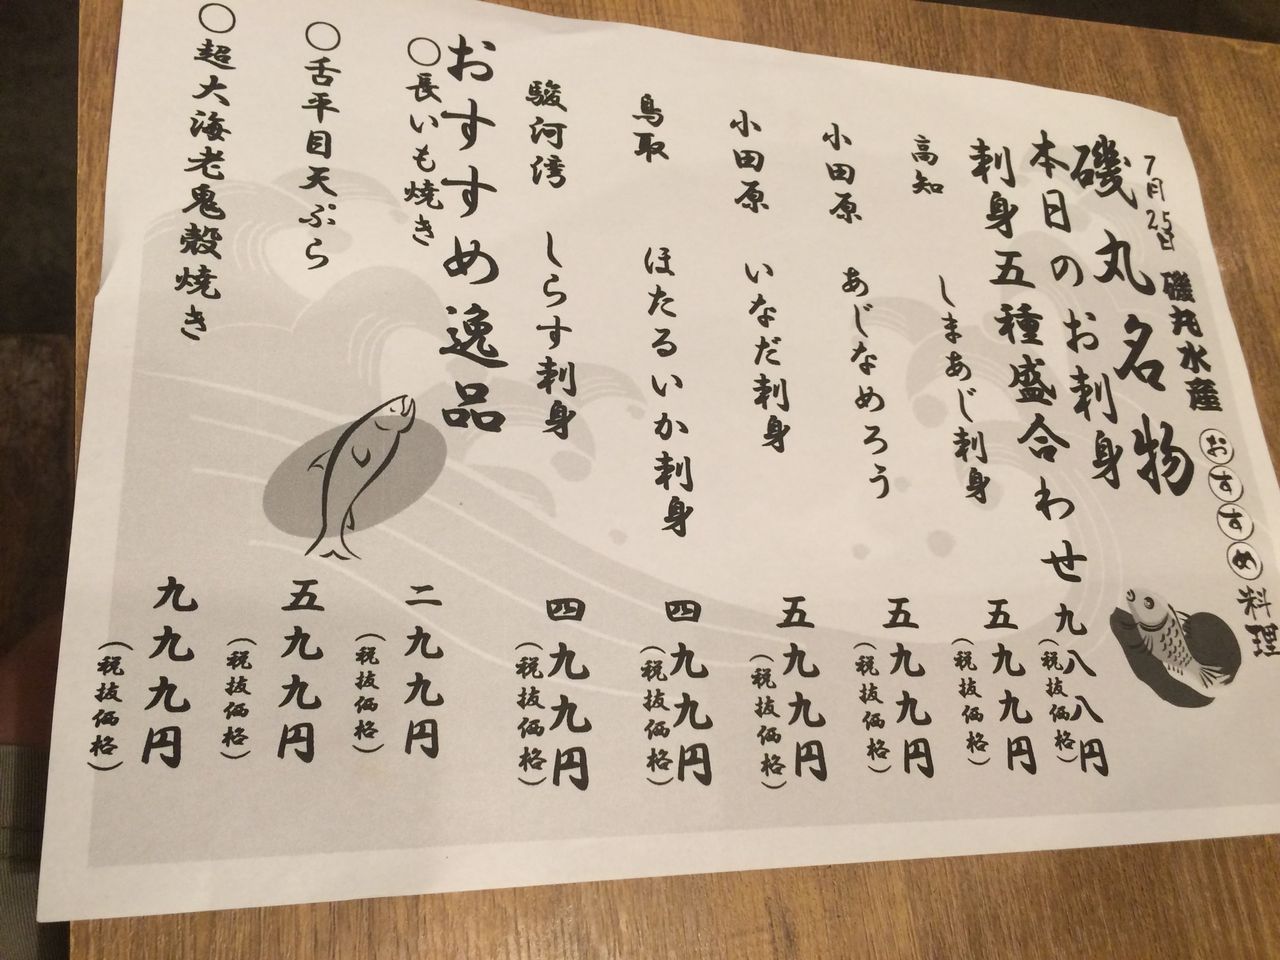 7月25日 磯丸水産 おすすめ料理
磯丸名物
本日のお刺身
刺身五種盛合わせ 九八八円
（税抜価格）
高知 しまあじ刺身 五九九円
（税抜価格）
小田原 あじなめろう 五九九円
（税抜価格）
小田原 いなだ刺身 五九九円
（税抜価格）
鳥取 ほたるいか刺身 四九九円
（税抜価格）
駿河湾 しらす刺身 四九九円
（税抜価格）
おすすめ逸品
○長いも焼き 二九九円
（税抜価格）
○舌平目天ぷら 五九九円
（税抜価格）
○超大海老鬼殻焼き 九九九円
（税抜価格）